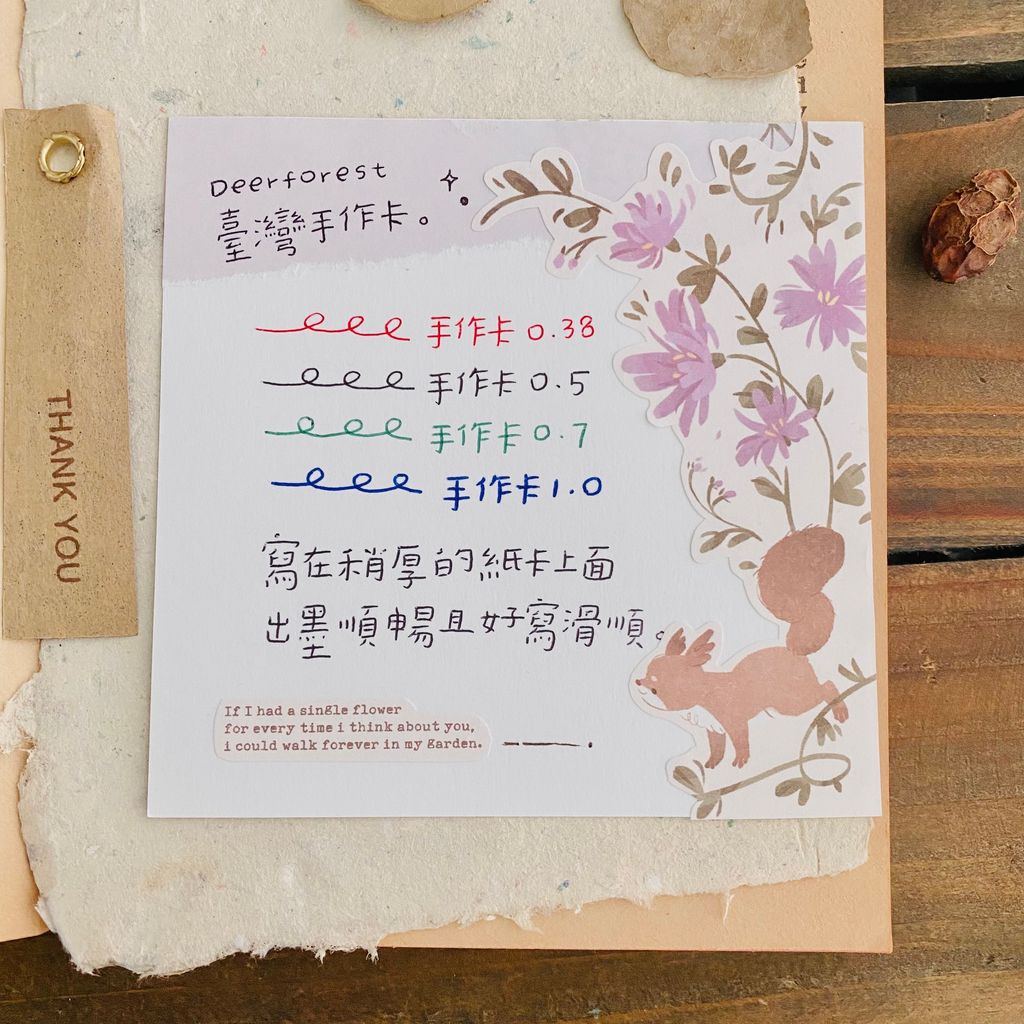 Deerforest
臺灣手作卡。
手作卡 0.38
手作卡 0.5
手作卡 0.7
手作卡 1.0
寫在稍厚的紙卡上面
出墨順暢且好寫滑順。
If I had a single flower
for every time i think about you,
i could walk forever in my garden.
THANK YOU